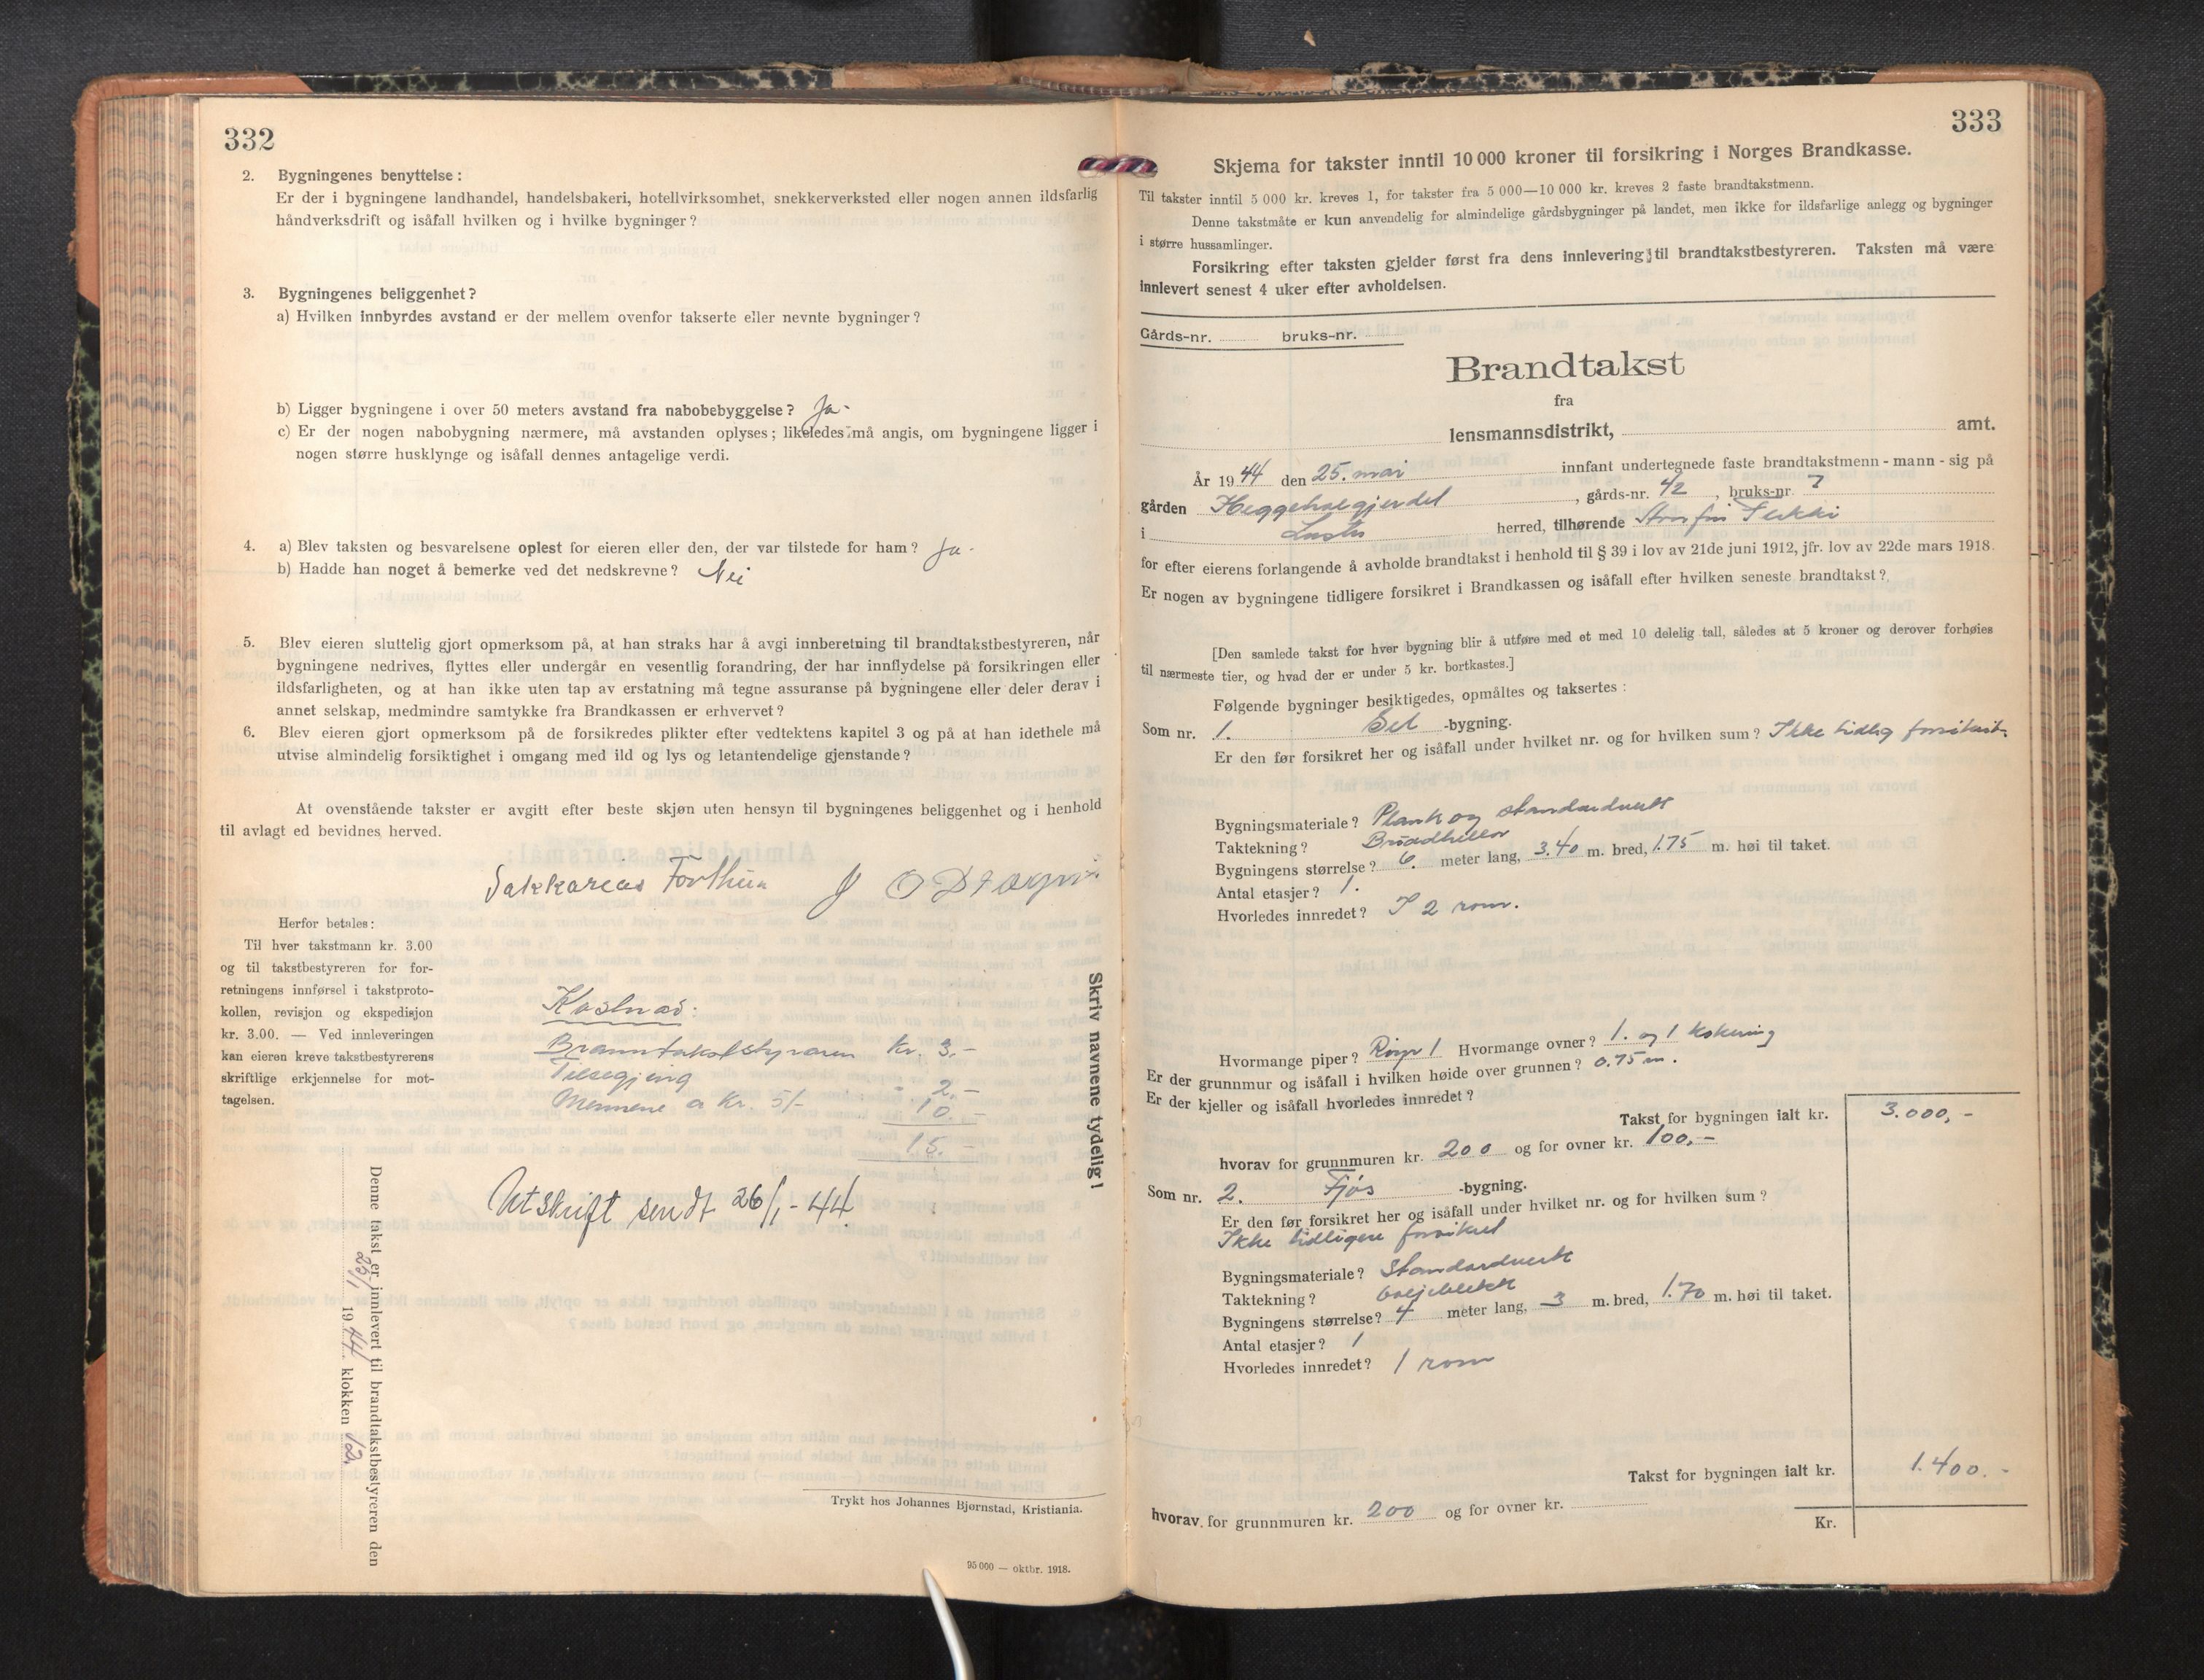 332
2. Bygningenes benyttelse :
Er der i bygningene landhandel, handelsbakeri, hotellvirksomhet, snekkerverksted eller nogen annen ildsfarlig
håndverksdrift og isåfall hvilken og i hvilke bygninger ?
3. Bygningenes beliggenhet ?
a) Hvilken innbyrdes avstand er der mellem ovenfor takserte eller nevnte bygninger ?
b) Ligger bygningene i over 50 meters avstand fra nabobebyggelse ? Ja.
c) Er der nogen nabobygning nærmere, må avstanden oplyses ; likeledes må angis, om bygningene ligger i
nogen større husklynge og isåfall dennes antagelige verdi.
4. a) Blev taksten og besvarelsene oplest for eieren eller den, der var tilstede for ham ? Ja.
b) Hadde han noget å bemerke ved det nedskrevne ? Nei
5. Blev eieren sluttelig gjort opmerksom på, at han straks har å avgi innberetning til brandtakstbestyreren, når
bygningene nedrives, flyttes eller undergår en vesentlig forandring, der har innflydelse på forsikringen eller
ildsfarligheten, og at han ikke uten tap av erstatning må tegne assuranse på bygningene eller deler derav i
annet selskap, medmindre samtykke fra Brandkassen er erhvervet ?
6. Blev eieren gjort opmerksom på de forsikredes plikter efter vedtektens kapitel 3 og på at han idethele må
utvise almindelig forsiktighet i omgang med ild og lys og letantendelige gjenstande ?
At ovenstående takster er avgitt efter beste skjøn uten hensyn til bygningenes beliggenhet og i henhold
til avlagt ed bevidnes herved.
Sakkarias Forthun
Herfor betales :
Til hver takstmann kr. 3.00
og til takstbestyreren for for-
retningens innførsel i takstproto-
kollen, revisjon og ekspedisjon
kr. 3.00. — Ved innleveringen
kan eieren kreve takstbestyrerens
skriftlige erkjennelse for mot-
tagelsen.
Kostnad:
Branntakststyraren Kr. 3.-
Tilsegjeing - 2.-
Mennene a Kr. 5/- 10.-
15.-
Utskrift sendt 26/1-44.
Skriv navnene tydelig !
Denne takst er innlevert til brandtakstbestyreren den
25/1 1944 klokken 12
Trykt hos Johannes Bjørnstad, Kristiania.
95 000 — oktbr. 1918.
333
Skjema for takster inntil 10 000 kroner til forsikring i Norges Brandkasse.
Til takster inntil 5 000 kr. kreves 1, for takster fra 5 000—10 000 kr. kreves 2 faste brandtakstmenn.
Denne takstmåte er kun anvendelig for almindelige gårdsbygninger på landet, men ikke for ildsfarlige anlegg og bygninger
i større hussamlinger.
Forsikring efter taksten gjelder først fra dens innlevering til brandtakstbestyreren. Taksten må være
innlevert senest 4 uker efter avholdelsen.
Gårds-nr. bruks-nr.
Brandtakst
fra
lensmannsdistrikt, amt.
År 1944 den 25. mai innfant undertegnede faste brandtakstmenn - mann - sig på
gården Heggehalgjerdet, gårds-nr. 42, bruks-nr. 7
i Luster herred, tilhørende Arnfin
for efter eierens forlangende å avholde brandtakst i henhold til § 39 i lov av 21de juni 1912, jfr. lov av 22de mars 1918.
Er nogen av bygningene tidligere forsikret i Brandkassen og isåfall efter hvilken seneste brandtakst ?
[Den samlede takst for hver bygning blir å utføre med et med 10 delelig tall, således at 5 kroner og derover forhøies
til nærmeste tier, og hvad der er under 5 kr. bortkastes.]
Følgende bygninger besiktigedes, opmåltes og taksertes :
Som nr. 1. Sel -bygning.
Er den før forsikret her og isåfall under hvilket nr. og for hvilken sum ? Ikke tidlig forsikret.
Bygningsmateriale ? Plank og standardverk
Taktekning ? Brødheller
Bygningens størrelse ? 6. meter lang, 3.40 m. bred, 1.75 m. høi til taket.
Antal etasjer ? 1.
Hvorledes innredet ? I 2 rom.
Hvormange piper ? Røyr 1 Hvormange ovner ? 1. og 1 kokering
Er der grunnmur og isåfall i hvilken høide over grunnen ? 0.75 m.
Er der kjeller og isåfall hvorledes innredet ?
Takst for bygningen ialt kr. 3.000,-
hvorav for grunnmuren kr. 200 og for ovner kr. 100,-
Som nr. 2. Fjøs -bygning.
Er den før forsikret her og isåfall under hvilket nr. og for hvilken sum ?
Ikke tidligere forsikret
Bygningsmateriale ? Standardverk
Taktekning ? bølgjeblekk
Bygningens størrelse ? 4 meter lang, 3 m. bred, 1.70 m. høi til taket.
Antal etasjer ? 1
Hvorledes innredet ? 1 rom
Takst for bygningen ialt kr. 1.400.-
hvorav for grunnmuren kr. 200 og for ovner kr.
Kr.